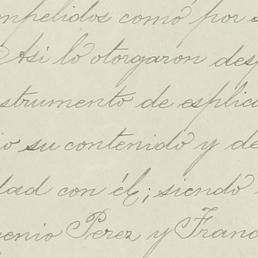 mpelidos como por s
Asi lo otorgaron desp
strumento de esplica
o su contenido y de
dad con él; siendo
enio Perez y Franc